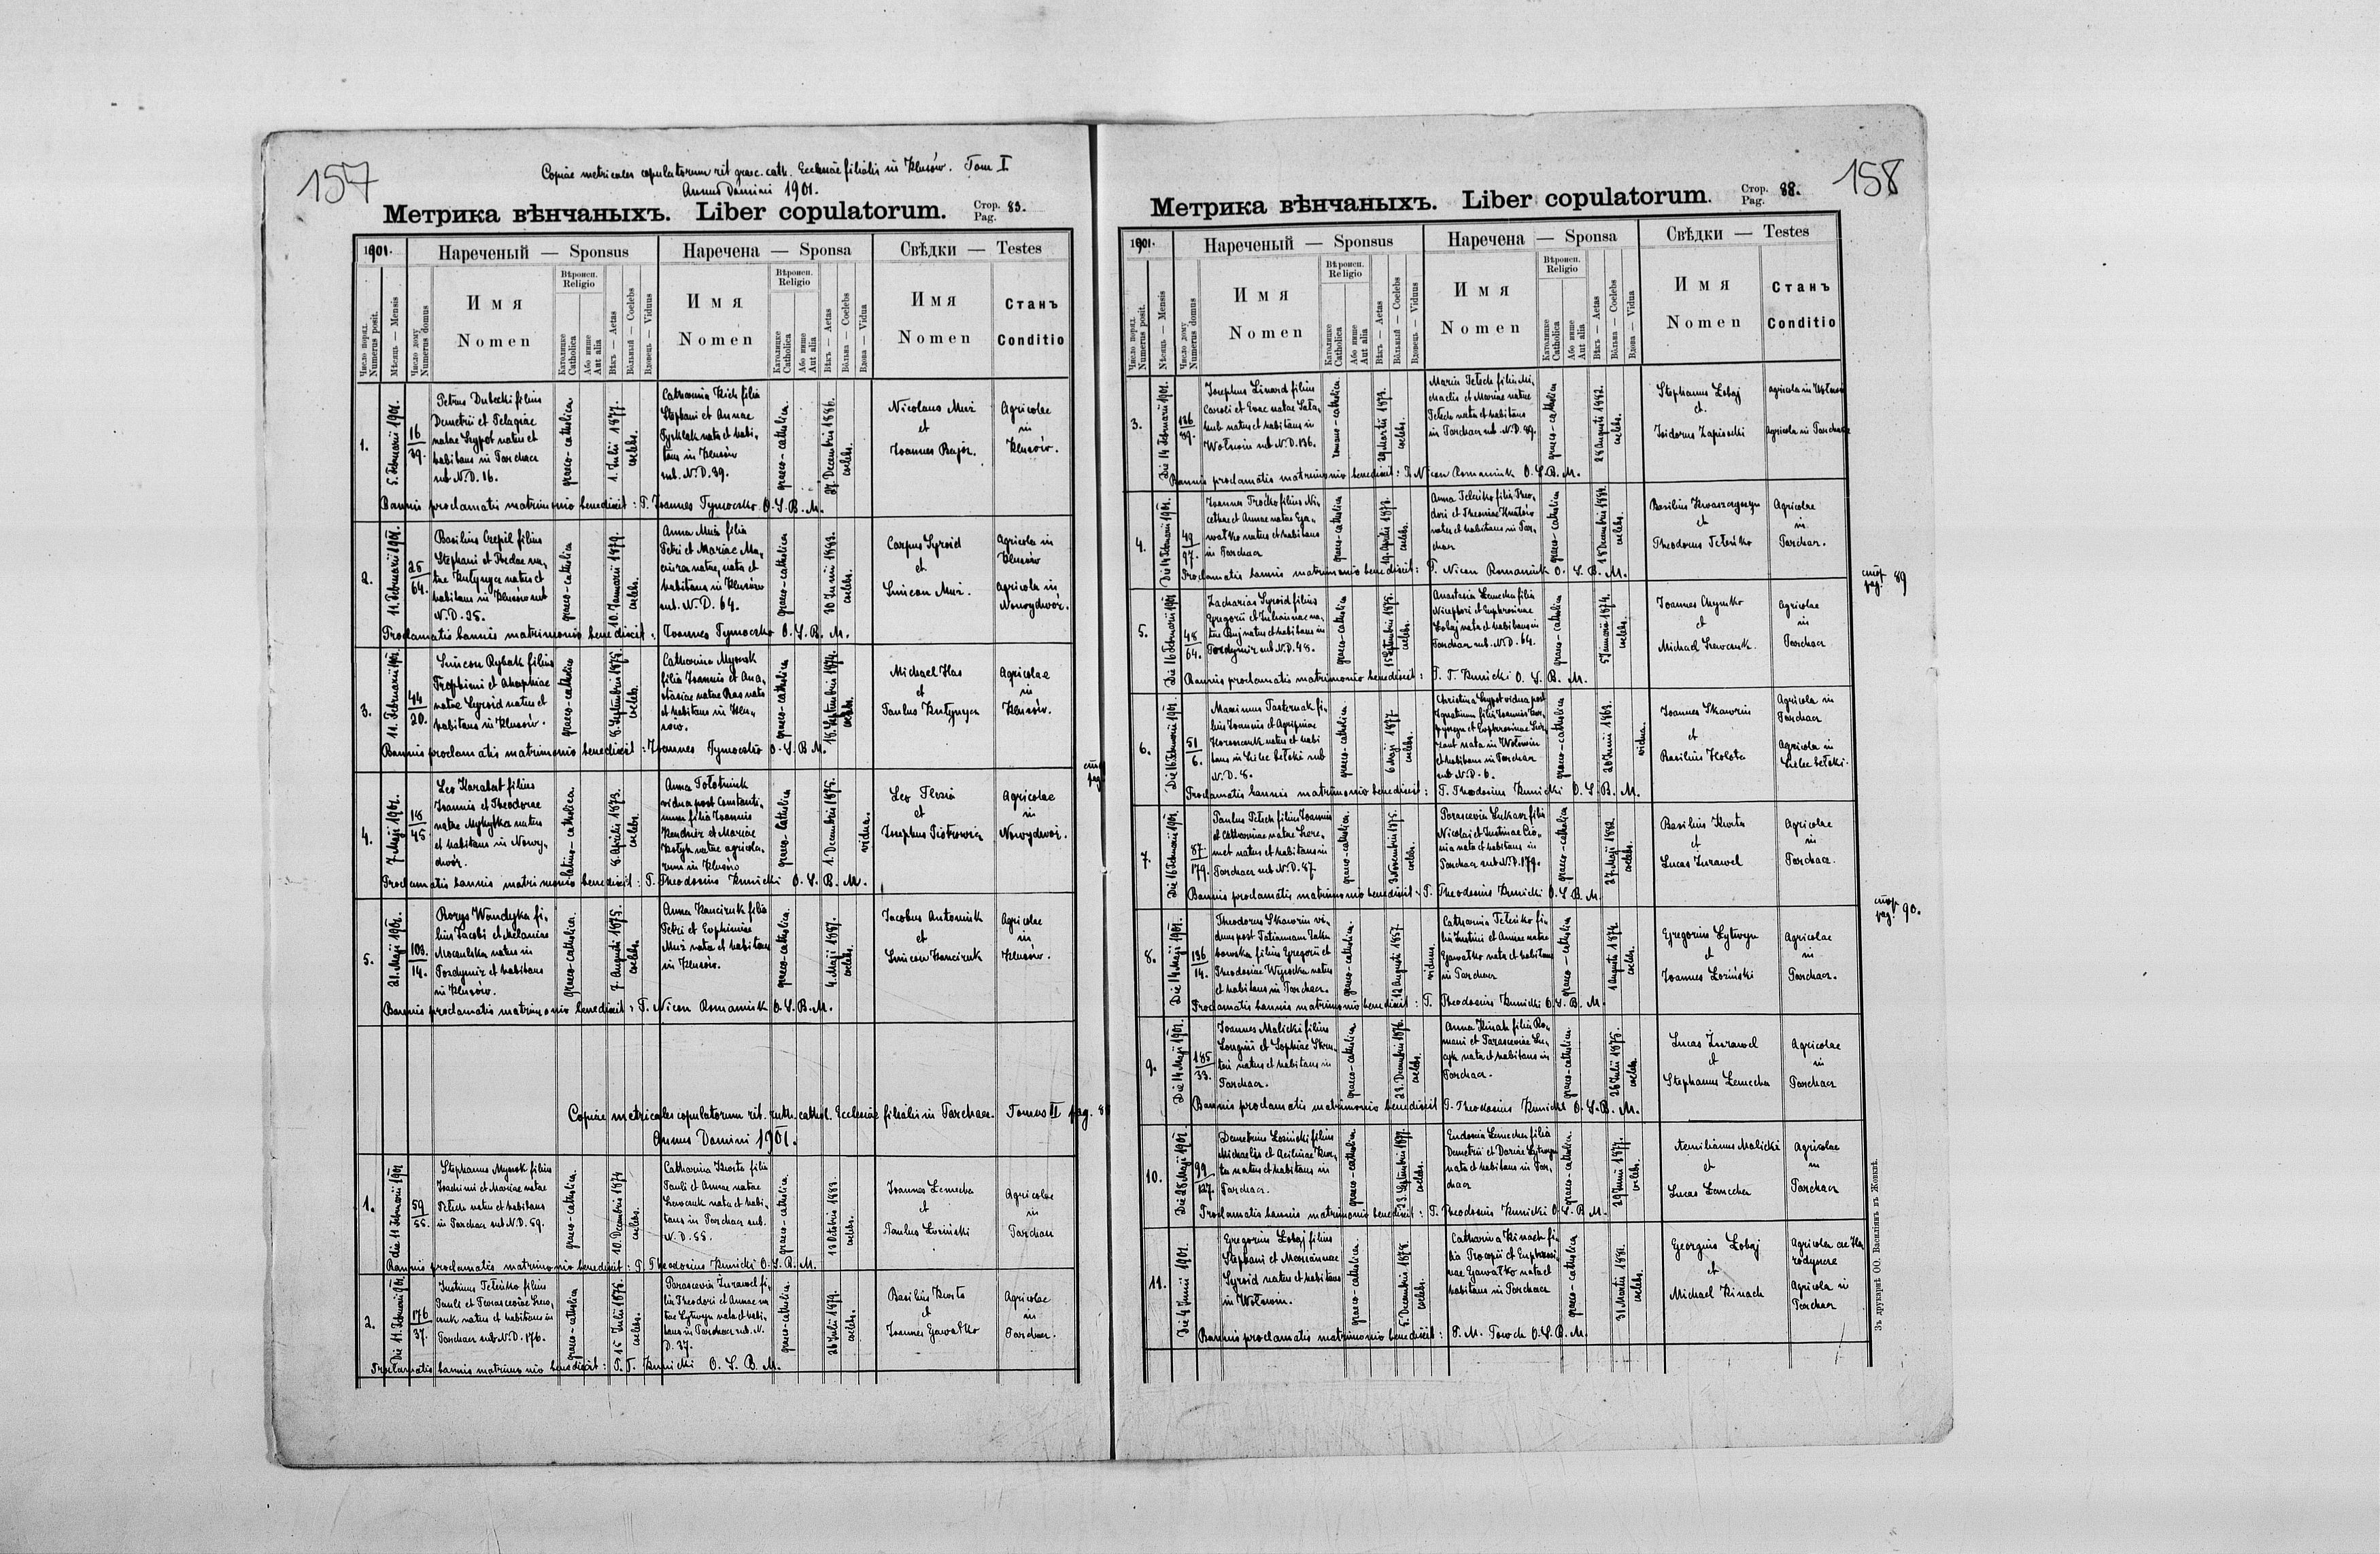 157
Copiae metricales copulatorum rit graec. cath. Ecclesiae filialis in Klusów. Tom I
Annus Domini 1901.
Метрика вѣнчаныхъ. Liber copulatorum.
Стор. Pag. 83.
1901.
Нареченый — Sponsus
Наречена — Sponsa
Свѣдки — Testes
Число поряд. Numerus posit.
Мѣсяць — Mensis
Число дому Numerus domus
Имя Nomen
Вѣроисп. Religio
Католицке Catholica
Або инше Aut alia
Вѣкъ — Aetas
Вôльный — Coelebs
Вдовець — Viduus
Имя Nomen
Вѣроисп. Religio
Католицке Catholica
Або инше Aut alia
Вѣкъ — Aetas
Вôльна — Coelebs
Вдова — Vidua
Имя Nomen
Станъ Conditio
1.
5. Februarii 1901.
16
39.
Petrus Dubecki filius
Demetrii et Pelagiae
natae Sczypot natus et
habitans in Parchacz
sub N.D. 16.
graeco-catholica.
1. Julii 1877.
coelebs.
Catharina Kich filia
Stephani et Annae
nata et habi-
tans in Klusów
sub. N. D. 39.
graeco-catholica.
27. Decembris 1886.
coelebs.
Nicolaus Muz
et
Joannes Bajor.
Agricolae
in
Klusów.
Bannis proclamatis matrimonio benedixit: P. Joannes Tymoczko O.S.B.M.
2.
11. Februarii 1901.
25
64.
Basilius Czepil filius
Stephani et
natus et
habitans in Klusów sub
N.D. 25.
graeco-catholica
10. Januarii 1879.
coelebs.
Anna Muz filia
Petri et Mariae
natae, nata et
habitans in Klusów
sub. N. D. 64.
graeco-catholica
30 Junii 1883.
coelebs.
Carpus Syroid
et
Simeon Muz.
Agricola in
Klusów
agricola in
Nowydwór.
Proclamatis bannis matrimonio benedixit: Joannes Tymoczko O.S.B.M.
3.
11. Februarii 1901.
44
20.
Simeon Rybak filius
Trophimi et Ahaphiae
natae Syroid natus et
habitans in Klusów.
graeco-catholica
8. Septembris 1875.
coelebs.
Catharina Mysnok
filia Joannis et Ana-
stasiae natae Has nata
et habitans in Klu-
sów.
graeco-catholica
18. Septembris 1874.
coelebs.
Michael Has
et
Paulus Kutynycz
Agricolae
in
Klusów.
Bannis proclamatis matrimonio benedixit: Joannes Tymoczko O.S.B.M.
4.
7. Maji 1901.
18
45.
Leo Karabat filius
Joannis et Theodorae
natae Mykytka natus
et habitans in Nowy-
dwór.
latino-catholica.
8. Aprilis 1873.
coelebs.
Anna Połotniuk
vidua post Constanti-
num filia Joannis
et Mariae
natae agricola-
rum in Klusów
graeco-catholica
1. Decembris 1875.
vidua.
Leo
et
Josephus Piotrowicz
Agricolae
in
Nowydwór.
Proclamatis bannis matrimonio benedixit: P. Theodosius Kunicki O.S.B.M.
5.
21. Maji 1901.
103.
14.
Borys Wandyka fi-
lius Jacobi et Melaniae
natus in
Pozdymir et habitans
in Klusów.
graeco-catholica.
7. Augusti 1875.
coelebs.
Anna Kanciruk filia
Petri et Euphimiae
Muz nata et habitans
in Klusów.
graeco-catholica.
4. Maji 1887.
coelebs.
Jacobus Antoniuk
et
Simeon Kanciruk
Agricolae
in
Klusów.
Bannis proclamatis matrimonio benedixit: P. Nicon Romaniuk O.S.B.M.
Copiae metricales copulatorum rit. ruth. cathol. Ecclesiae filialis in Parchacz. Tomus II pag.
Annus Domini 1901.
1.
die 11 Februarii 1901
59
55.
Stephanus Mysnok filius
Joachimi et Mariae natae
Petech natus et habitans
in Parchacz sub N.D. 59.
graeco-catholica.
10. Decembris 1874
coelebs.
Catharina Kwota filia
Pauli et Annae natae
Szewczuk nata et habi-
tans in Parchacz sub.
N. D. 55.
graeco-catholica.
13 Octobris 1883.
coelebs.
Joannes Lemecha
et
Paulus Łoziński
Agricolae
in
Parchacz
Bannis proclamatis matrimonio benedixit: P. Theodosius Kunicki O.S.B.M.
2.
Die 11. Februarii 1901.
176
37.
Justinus Teleńko filius
Pauli et Parasceviae Szew-
czuk natus et habitans in
Parchacz sub N.D. 176.
graeco-catholica
15 Julii 1876.
coelebs.
Parascevia Zurawel fi-
lia Theodori et Annae na-
tae Lytwyn nata et habi-
tans in Parchacz sub. N.
D. 37.
graeco-catholica.
26 Julii 1879.
coelebs.
Basilius Kwota
et
Joannes Gawałko
Agricolae
in
Parchacz.
Proclamatis bannis matrimonio benedixit: P. T. Kunicki O.S.B.M.
158
Метрика вѣнчаныхъ. Liber copulatorum.
Стор. Pag. 88.
1901.
Нареченый — Sponsus
Наречена — Sponsa
Свѣдки — Testes
Число поряд. Numerus posit.
Мѣсяць — Mensis
Число дому Numerus domus
Имя Nomen
Вѣроисп. Religio
Католицке Catholica
Або инше Aut alia
Вѣкъ — Aetas
Вôльный — Coelebs
Вдовець — Viduus
Имя Nomen
Вѣроисп. Religio
Католицке Catholica
Або инше Aut alia
Вѣкъ — Aetas
Вôльна — Coelebs
Вдова — Vidua
Имя Nomen
Станъ Conditio
3.
Die 14 Februarii 1901.
136
89.
Josephus Linard filius
Caroli et Evae natae
natus et habitans in
Wołswin sub N.D. 136.
romano-catholica.
29 Martii 1873.
coelebs.
Maria Petech filia Mi-
chaelis et Mariae natae
Petech nata et habitans
in Parchacz sub N.D. 89.
graeco-catholica
28 Augusti 1882.
coelebs.
Stephanus Lobaj
et
Isidorus Zapisocki
agricola in Wołswin
Agricola in Parchacz
Bannis proclamatis matrimonio benedixit: P. Nicon Romaniuk O.S.B.M.
4.
Die 14 Februarii 1901.
49
97.
Joannes Proćko filius Ni-
cetae et Annae natae Ga-
wałko natus et habitans
in Parchacz
graeco-catholica
19. Aprilis 1877.
coelebs.
Anna Teleńko filia Theo-
dori et
nata et habitans in Par-
chacz
graeco-catholica
18 Decembris 1884.
coelebs.
Basilius
et
Theodorus Teleńko
Agricolae
in
Parchacz.
Proclamatis bannis matrimonio benedixit: P. Nicon Romaniuk O.S.B.M.
стор. pag. 89
5.
Die 16 Februarii 1901
48
64.
Zacharias Syroid filius
Gregorii et na-
tae Buj natus et habitans in
Pozdymir sub N.D. 48.
graeco-catholica
15 Septembris 1875.
coelebs.
Anastasia Lemecha filia
Nicephori et Euphrosinae
Lobaj nata et habitans in
Parchacz sub. N.D. 64.
graeco-catholica
5 Januarii 1874.
coelebs.
Joannes Chymko
et
Michael Szewczuk.
Agricolae
in
Parchacz
Bannis proclamatis matrimonio benedixit: P. T. Kunicki O.S.B.M.
6.
Die 16 Februarii 1901.
51
6.
Maximus Pasternak fi-
lius Joannis et Agripinae
natus et habi
tans in Sielec bełski sub
N. D. 8.
graeco-catholica.
6 Maji 1877
coelebs.
Christina Sczypot vidua post
Ignatium filia Joannis
et Euphrosinae
nata in Wołswin
et habitans in Parchacz
sub N.D. 6.
graeco-catholica
20 Junii 1863.
vidua.
Joannes Skawrin
et
Basilius Holota
Agricola in
Parchacz
Agricola in
Sielec bełski.
Proclamatis bannis matrimonio benedixit: P. Theodosius Kunicki O.S.B.M.
7
Die 16 Februarii 1901.
87.
179.
Paulus Petech filius Joannis
et Catharinae natae Szere-
met natus et habitans in
Parchacz sub N.D. 87.
graeco-catholica.
3 Novembris 1875.
coelebs.
Parascevia Łukasz filia
Nicolai et Justinae
nata et habitans in
Parchacz sub N.D. 179.
graeco-catholica
27. Maji 1882.
coelebs.
Basilius Kwota
et
Lucas Zurawel
Agricolae
in
Parchacz.
Bannis proclamatis matrimonio benedixit: P. Theodosius Kunicki O.S.B.M.
стор. pag. 90.
8.
Die 14 Maji 1901.
136
14.
Theodorus Skawrin vi-
duus post Tatianam
filius Gregorii et
Theodosiae Wysocka natus
et habitans in Parchacz.
graeco-catholica.
12 Augusti 1857.
viduus.
Catharina Teleńko fi-
lia Justini et Annae natae
Gawałko nata et habitans
in Parchacz
graeco-catholica
1 Augusti 1874.
coelebs.
Gregorius Lytwyn
et
Joannes Łoziński
Agricolae
in
Parchacz.
Proclamatis bannis matrimonio benedixit: P. Theodosius Kunicki O.S.B.M.
9.
Die 14 Maji 1901.
185
33.
Joannes Malicki filius
Longini et Sophiae
natus et habitans in
Parchacz.
graeco-catholica
23. Decembris 1876.
coelebs.
Anna Kinah filia Ro-
mani et Parasceviae
nata et habitans in
Parchacz.
graeco-catholica.
26 Julii 1875.
coelebs.
Lucas Żurawel
et
Stephanus Lemecha
Agricolae
in
Parchacz
Bannis proclamatis matrimonio benedixit P. Theodosius Kunicki O.S.B.M.
10.
Die 28 Maji 1901.
99
127.
Demetrius Łoziński filius
Michaelis et Acilinae Kwo-
ta natus et habitans in
Parchacz.
graeco-catholica
23. Septembris 1877.
coelebs.
Eudoxia Lemecha filia
Demetrii et Dariae Lytwyn
nata et habitans in Par-
chacz
graeco-catholica.
29 Junii 1877.
coelebs.
Aemilianus Malicki
et
Lucas Lemecha
Agricolae
in
Parchacz
Proclamatis bannis matrimonio benedixit: P. Theodosius Kunicki O.S.B.M.
11.
Die 4 Junii 1901.
Gregorius Lobaj filius
Stephani et Marianna
Syroid natus et habitans
in Wołswin.
graeco-catholica.
5. Decembris 1878.
coelebs.
Catharina Kinach fi-
lia Procopii et Euphrosi-
nae Gawałko nata et
habitans in Parchacz
graeco-catholica
31 Martii 1881.
coelebs.
Georgius Lobaj
et
Michael Kinach
Agricola in
Parchacz
Bannis proclamatis matrimonio benedixit: P. M. Powch O.S.B.M.
Зъ друкарнѣ ОО. Василіянъ въ Жовквѣ.